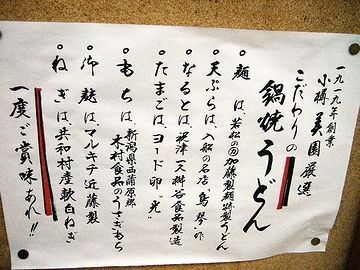 一九一九年創業
小樽 美園厳選
こだわりの
鍋焼うどん
麺は、若松の加藤製麺特製うどん
天ぷらは、入船の名店、鳥琴"作
なるとは、祝津(天)桝谷食品製造
たまごは、ヨード卵"光"
もちは、新潟県西蒲原郡
木村食品のうさぎもち
御麩は、マルキチ近藤製
ねぎは、共和村産軟白ねぎ
一度ご賞味あれ!!